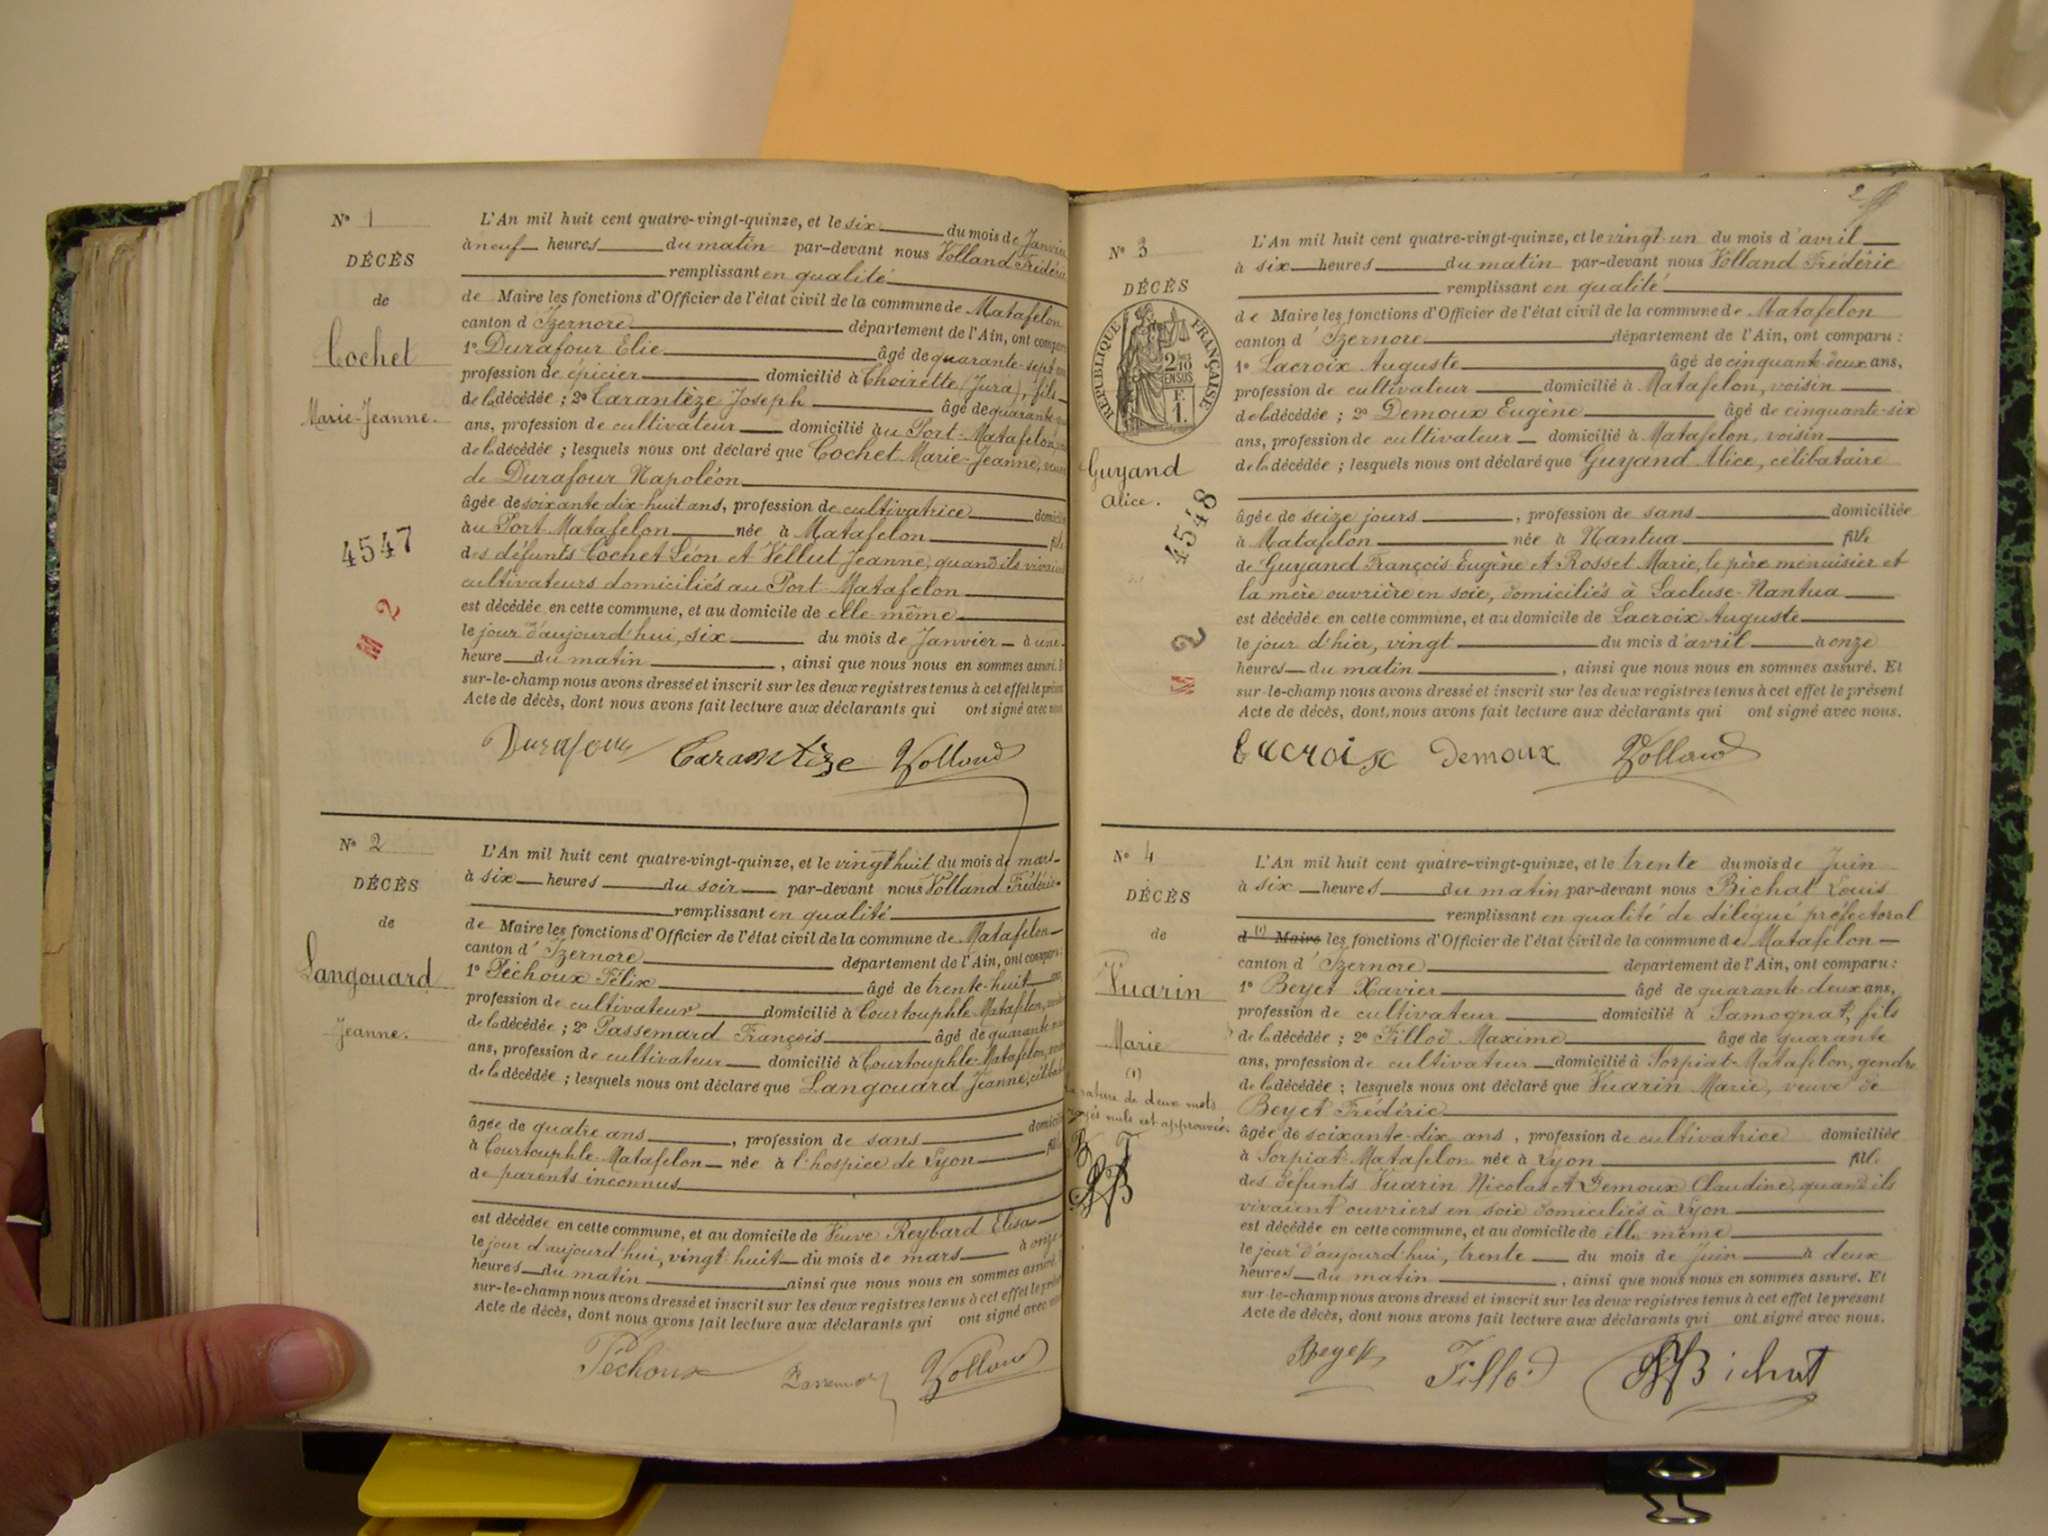 N° 1
DÉCÈS
de
Cochet
Marie-Jeanne.
4547
M 2
L'An mil huit cent quatre-vingt-quinze, et le six du mois de Janvier
à neuf heures du matin par-devant nous Volland Frédéric
remplissant en qualité
de Maire les fonctions d'Officier de l'état civil de la commune de Matafelon
canton d'Izernore département de l'Ain, ont comparu
1° Durafour Elie âgé de quarante-sept ans
profession de épicier domicilié à Thoirette (Jura), fils
de la décédée ; 2° Carantèze Joseph âgé de quarante
ans, profession de cultivateur domicilié au Port-Matafelon
de la décédée ; lesquels nous ont déclaré que Cochet Marie-Jeanne, veuve
de Durafour Napoléon
âgée de soixante dix-huit ans, profession de cultivatrice domiciliée
au Port Matafelon née à Matafelon fille
des défunts Cochet Léon et Vellut Jeanne, quand ils vivaient
cultivateurs domiciliés au Port-Matafelon
est décédée en cette commune, et au domicile de elle-même
le jour d'aujourd'hui, six du mois de Janvier à une
heure du matin, ainsi que nous nous en sommes assuré. Et
sur-le-champ nous avons dressé et inscrit sur les deux registres tenus à cet effet le présent
Acte de décès, dont nous avons fait lecture aux déclarants qui ont signé avec nous.
Durafour Carantèze Volland
N° 2
DÉCÈS
de
Langouard
Jeanne.
L'An mil huit cent quatre-vingt-quinze, et le vingt huit du mois de mars
à six heures du soir par-devant nous Volland Frédéric
remplissant en qualité
de Maire les fonctions d'Officier de l'état civil de la commune de Matafelon
canton d'Izernore département de l'Ain, ont comparu :
1° Péchoux Félix âgé de trente-huit ans,
profession de cultivateur domicilié à Courtouphle-Matafelon,
de la décédée ; 2° Passemard François âgé de quarante
ans, profession de cultivateur domicilié à Courtouphle-Matafelon,
de la décédée ; lesquels nous ont déclaré que Langouard Jeanne, célibataire
âgée de quatre ans, profession de sans domiciliée
à Courtouphle-Matafelon née à l'hospice de Lyon fille
de parents inconnus
est décédée en cette commune, et au domicile de Veuve Reybard Elisa
le jour d'aujourd'hui, vingt huit du mois de mars à onze
heures du matin ainsi que nous nous en sommes assuré. Et
sur-le-champ nous avons dressé et inscrit sur les deux registres tenus à cet effet le présent
Acte de décès, dont nous avons fait lecture aux déclarants qui ont signé avec nous
Péchoux Passemard Volland
2
N° 3
DÉCÈS
RÉPUBLIQUE FRANÇAISE
2/10
EN SUS
F.
1.
Guyand
Alice.
4548
M 2
L'An mil huit cent quatre-vingt-quinze, et le vingt un du mois d'avril
à six heures du matin par-devant nous Volland Frédéric
remplissant en qualité
de Maire les fonctions d'Officier de l'état civil de la commune de Matafelon
canton d'Izernore département de l'Ain, ont comparu :
1° Lacroix Auguste âgé de cinquante-deux ans,
profession de cultivateur domicilié à Matafelon, voisin
de la décédée ; 2° Demoux Eugène âgé de cinquante-six
ans, profession de cultivateur domicilié à Matafelon, voisin
de la décédée ; lesquels nous ont déclaré que Guyand Alice, célibataire
âgée de seize jours, profession de sans domiciliée
à Matafelon née à Nantua fille
de Guyand François Eugène et Rosset Marie, le père menuisier et
la mère ouvrière en soie, domiciliés à Lacluse-Nantua
est décédée en cette commune, et au domicile de Lacroix Auguste
le jour d'hier, vingt du mois d'avril à onze
heures du matin, ainsi que nous nous en sommes assuré. Et
sur-le-champ nous avons dressé et inscrit sur les deux registres tenus à cet effet le présent
Acte de décès, dont nous avons fait lecture aux déclarants qui ont signé avec nous.
Lacroix Demoux Volland
N° 4
DÉCÈS
de
Vuarin
Marie
(1)
rature de deux mots
rayés nuls est approuvée.
L'An mil huit cent quatre-vingt-quinze, et le trente du mois de Juin
à six heures du matin par-devant nous Bichat Louis
remplissant en qualité de délégué préfectoral
d (1) Maire les fonctions d'Officier de l'état civil de la commune de Matafelon
canton d'Izernore département de l'Ain, ont comparu :
1° Beyet Xavier âgé de quarante-deux ans,
profession de cultivateur domicilié à Samognat, fils
de la décédée ; 2° Fillod Maxime âgé de quarante
ans, profession de cultivateur domicilié à Sorpiat-Matafelon, gendre
de la décédée ; lesquels nous ont déclaré que Vuarin Marie, veuve de
Beyet Frédéric
âgée de soixante-dix ans, profession de cultivatrice domiciliée
à Sorpiat-Matafelon née à Lyon fille
des défunts Vuarin Nicolas et Demoux Claudine, quand ils
vivaient ouvriers en soie domiciliés à Lyon
est décédée en cette commune, et au domicile de elle même
le jour d'aujourd'hui, trente du mois de Juin à deux
heures du matin, ainsi que nous nous en sommes assuré. Et
sur-le-champ nous avons dressé et inscrit sur les deux registres tenus à cet effet le présent
Acte de décès, dont nous avons fait lecture aux déclarants qui ont signé avec nous.
Beyet Fillod Bichat